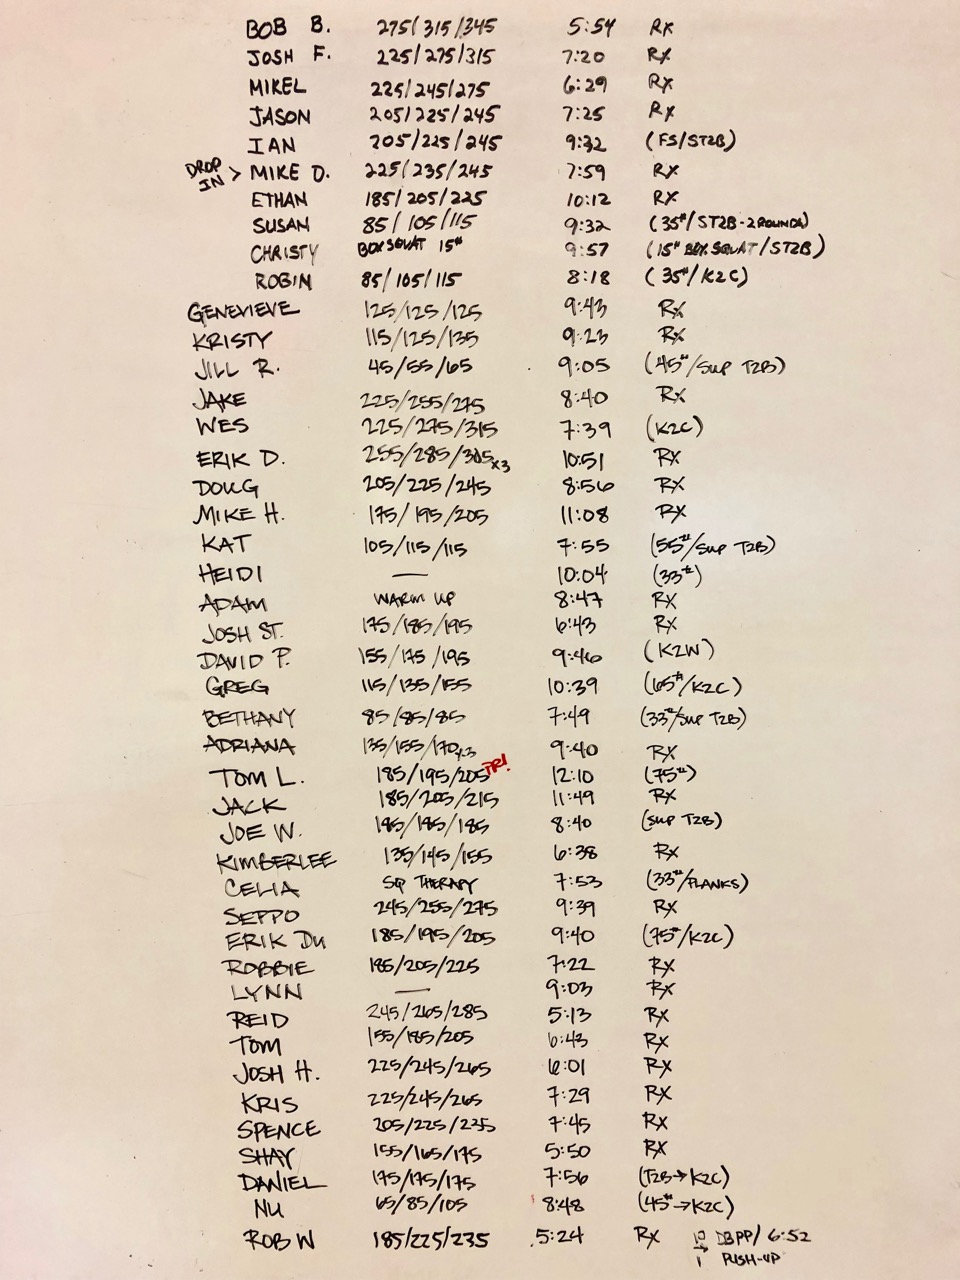 BOB B. 275/315/345 5:54 Rx
JOSH F. 225/275/315 7:20 Rx
MIKEL 225/245/275 6:29 Rx
JASON 205/225/245 7:25 Rx
IAN 205/225/245 9:32 (FS/ST2B)
DROP IN > MIKE D. 225/235/245 7:59 Rx
ETHAN 185/205/225 10:12 Rx
SUSAN 85/105/115 9:32 (35#/ST2B-2 ROUNDS)
CHRISTY BOX SQUAT 15# 9:57 (15# BOX SQUAT/ST2B)
ROBIN 85/105/115 8:18 (35#/K2C)
GENEVIEVE 125/125/125 9:43 Rx
KRISTY 115/125/135 9:23 Rx
JILL R. 45/55/65 9:05 (45#/SUP T2B)
JAKE 225/255/275 8:40 Rx
WES 225/275/315 7:39 (K2C)
ERIK D. 255/285/305x3 10:51 Rx
DOUG 205/225/245 8:56 Rx
MIKE H. 175/195/205 11:08 Rx
KAT 105/115/115 7:55 (55#/SUP T2B)
HEIDI — 10:04 (33#)
ADAM WARM UP 8:47 Rx
JOSH ST. 175/185/195 6:43 Rx
DAVID P. 155/175/195 9:46 (K2W)
GREG 115/135/155 10:39 (65#/K2C)
BETHANY 85/85/85 7:49 (33#/SUP T2B)
ADRIANA 135/155/170x3 9:40 Rx
TOM L. 185/195/205 PR! 12:10 (75#)
JACK 185/205/215 11:49 Rx
JOE W. 185/185/185 8:40 (SUP T2B)
KIMBERLEE 135/145/155 6:38 Rx
CELIA SQ THERAPY 7:53 (33#/PLANKS)
SEPPO 245/255/275 9:39 Rx
ERIK DU 185/195/205 9:40 (75#/K2C)
ROBBIE 185/205/225 7:22 Rx
LYNN — 9:03 Rx
REID 245/265/285 5:13 Rx
TOM 155/185/205 6:43 Rx
JOSH H. 225/245/265 6:01 Rx
KRIS 225/245/265 7:29 Rx
SPENCE 205/225/235 7:45 Rx
SHAY 155/165/175 5:50 Rx
DANIEL 175/175/175 7:56 (T2B→K2C)
NU 65/85/105 8:48 (45#→K2C)
ROB W 185/225/235 5:24 Rx 10→1 DBPP/ 6:52
PUSH-UP